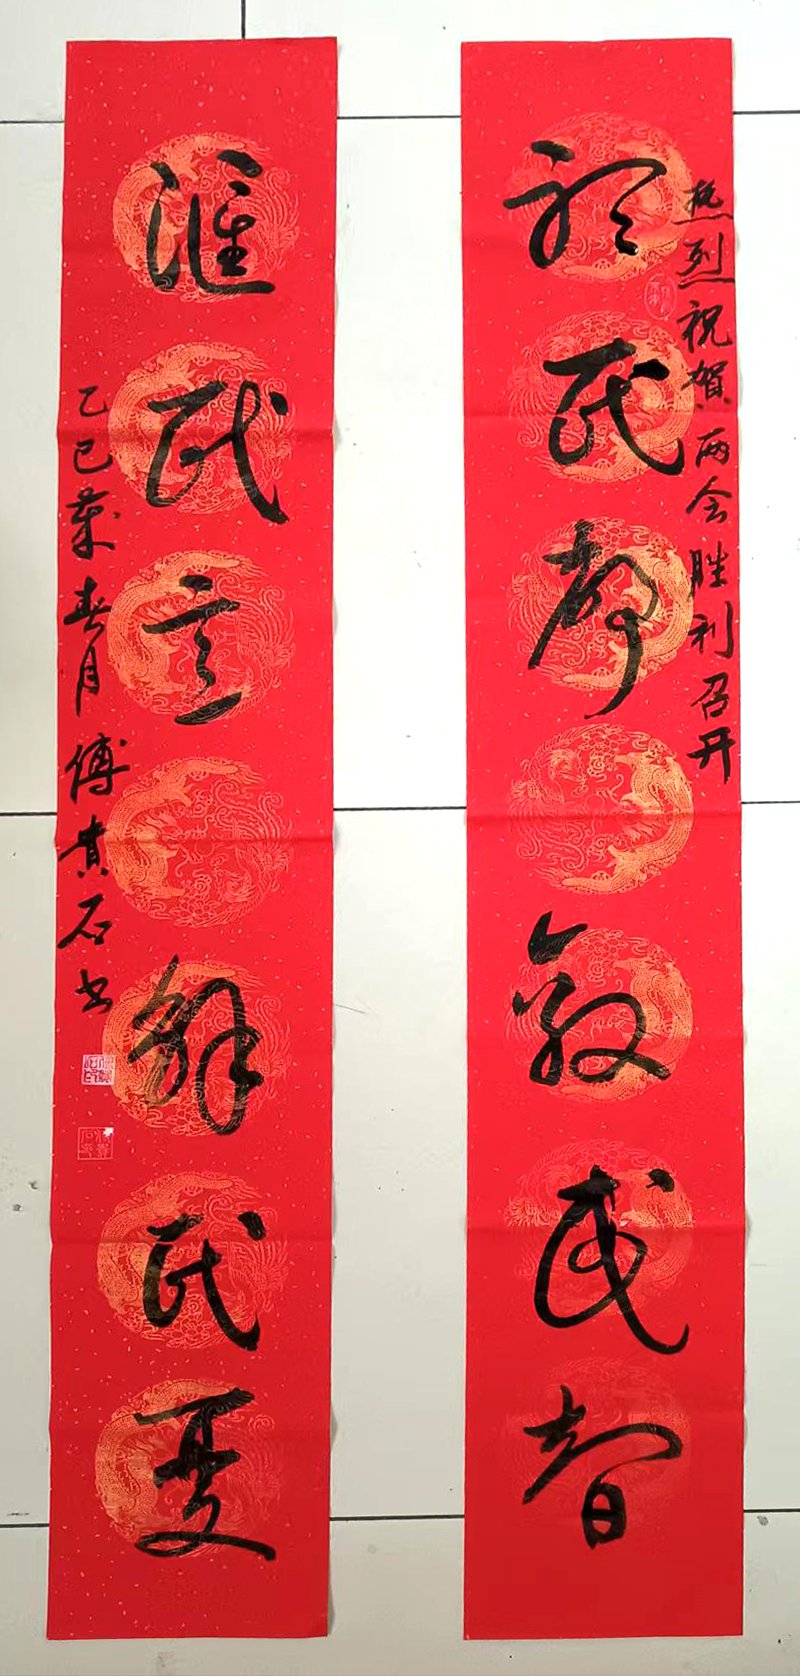 热烈祝贺两会胜利召开
聆民声 敛民智
匯民意 解民憂
乙巳岁春月傅贵石书